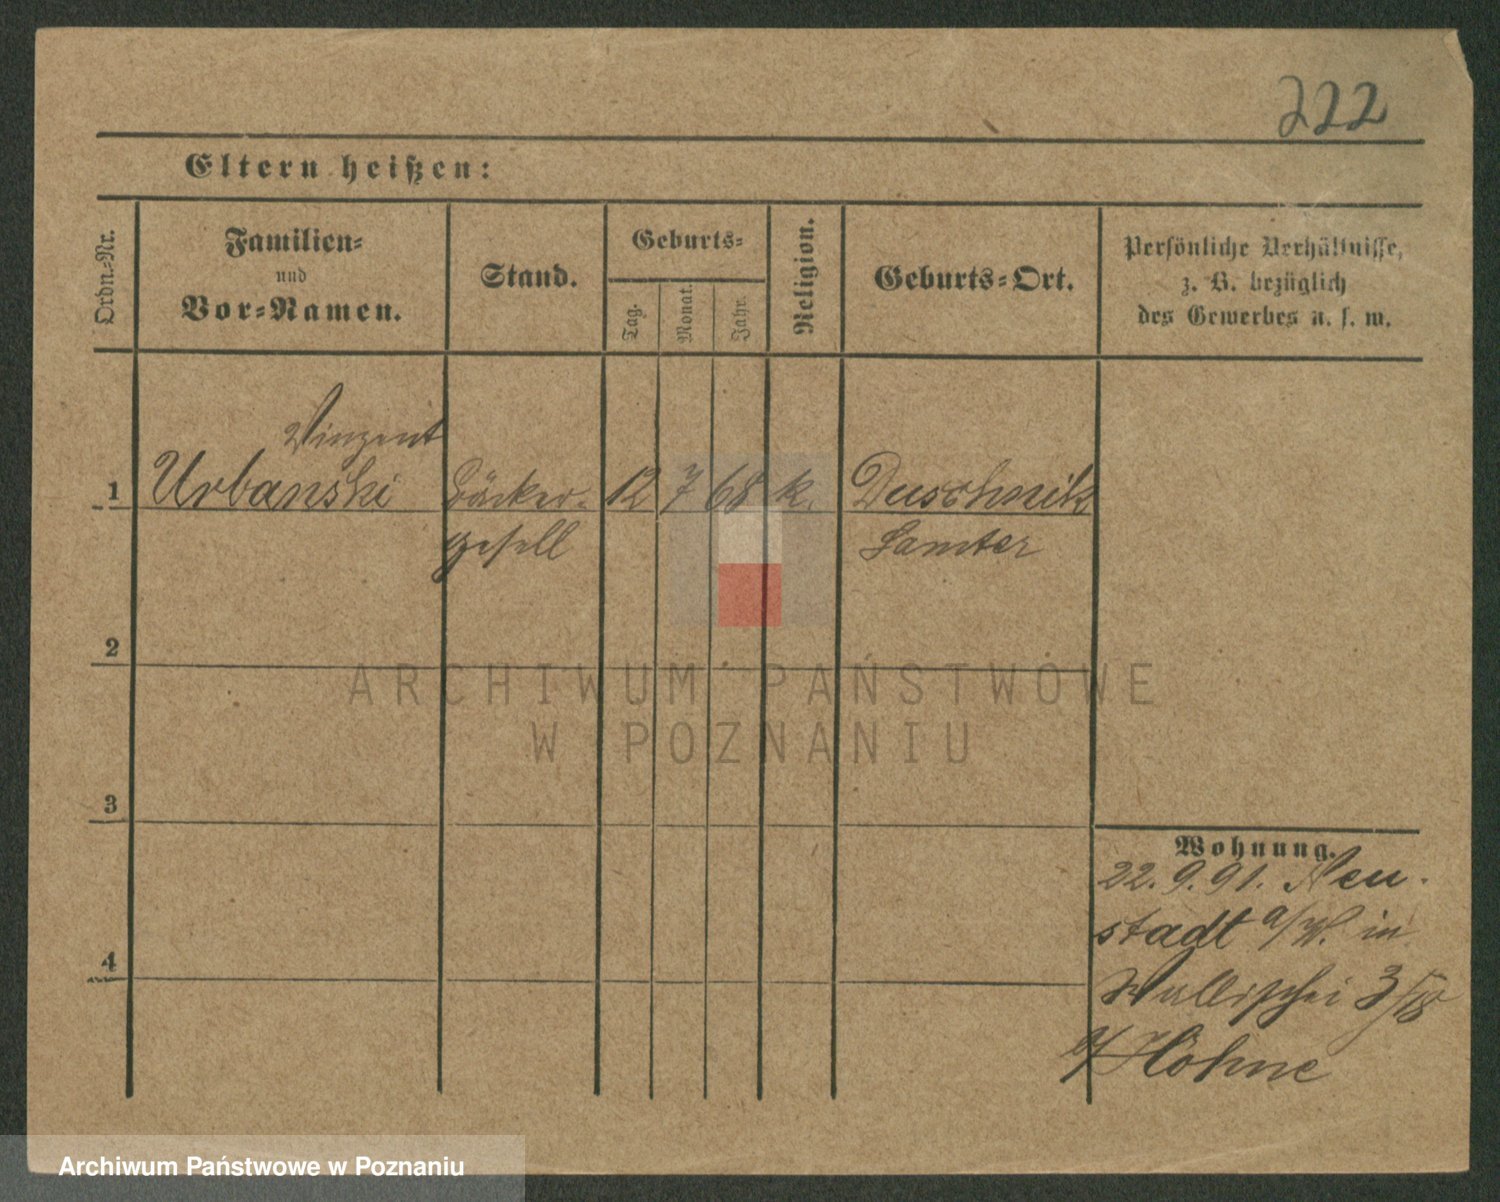 222
Eltern heißen:
Ordn.-Nr.
Familien-
und
Vor-Namen.
Stand.
Geburts-
Tag.
Monat.
Jahr.
Religion.
Geburts-Ort.
Persönliche Verhältnisse,
z. B. bezüglich
des Gewerbes u. s. w.
Vinzent
1 Urbanski Bäcker- 12 7 68 k. Duschnik
gesell Samter
2
3
4
Wohnung.
22. 9. 91. Neu-
stadt a/W. in
Wallischei 3/
Höhne
ARCHIWUM PAŃSTWOWE
W POZNANIU
Archiwum Państwowe w Poznaniu